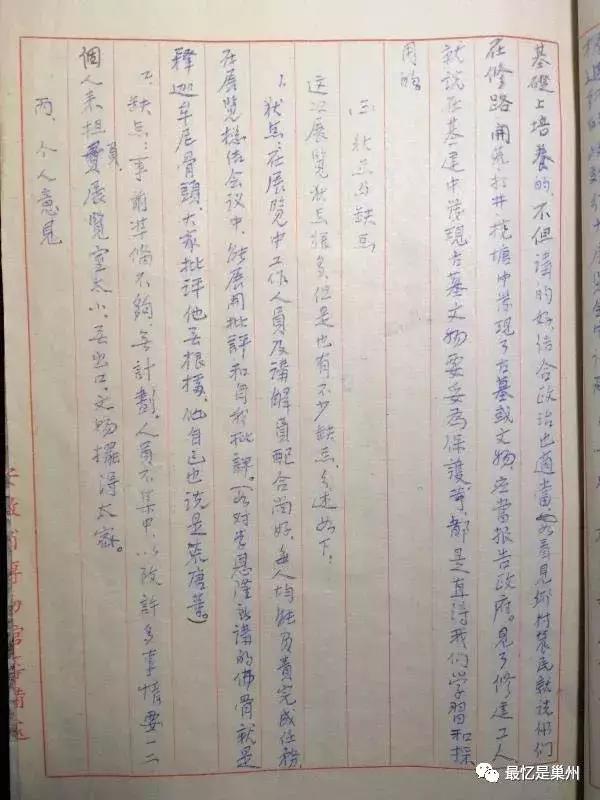 基礎上培養的，不但講的好，结合政治也適當，如看見鄉村農民就说你們
在修路、開荒、打井、挖塘中发现了古墓或文物，应當报告政府。見了修建工人
就说在基建中发現古墓文物要妥为保護等，都是直得我们学習和採
用的
(三) 优点与缺点
这次展覽优点很多，但是也有不少缺点，分述如下。
1、优点：在展覽中工作人員及講解員配合尚好，每人均能负責完成任務，
在展覽總结会议中，能展開批評和自我批評。(如对李恩潼所講的佛骨就是
释迦牟尼骨頭，大家批評他無根據，他自己也说是荒唐等)
2、缺点：事前準備不夠，無計劃。人員不集中，以致許多事情要一二
個人来担負，展覽室太小，無出口，文物擺得太密。
丙、个人意見
安徽省博物館筹備處
最忆是巢州